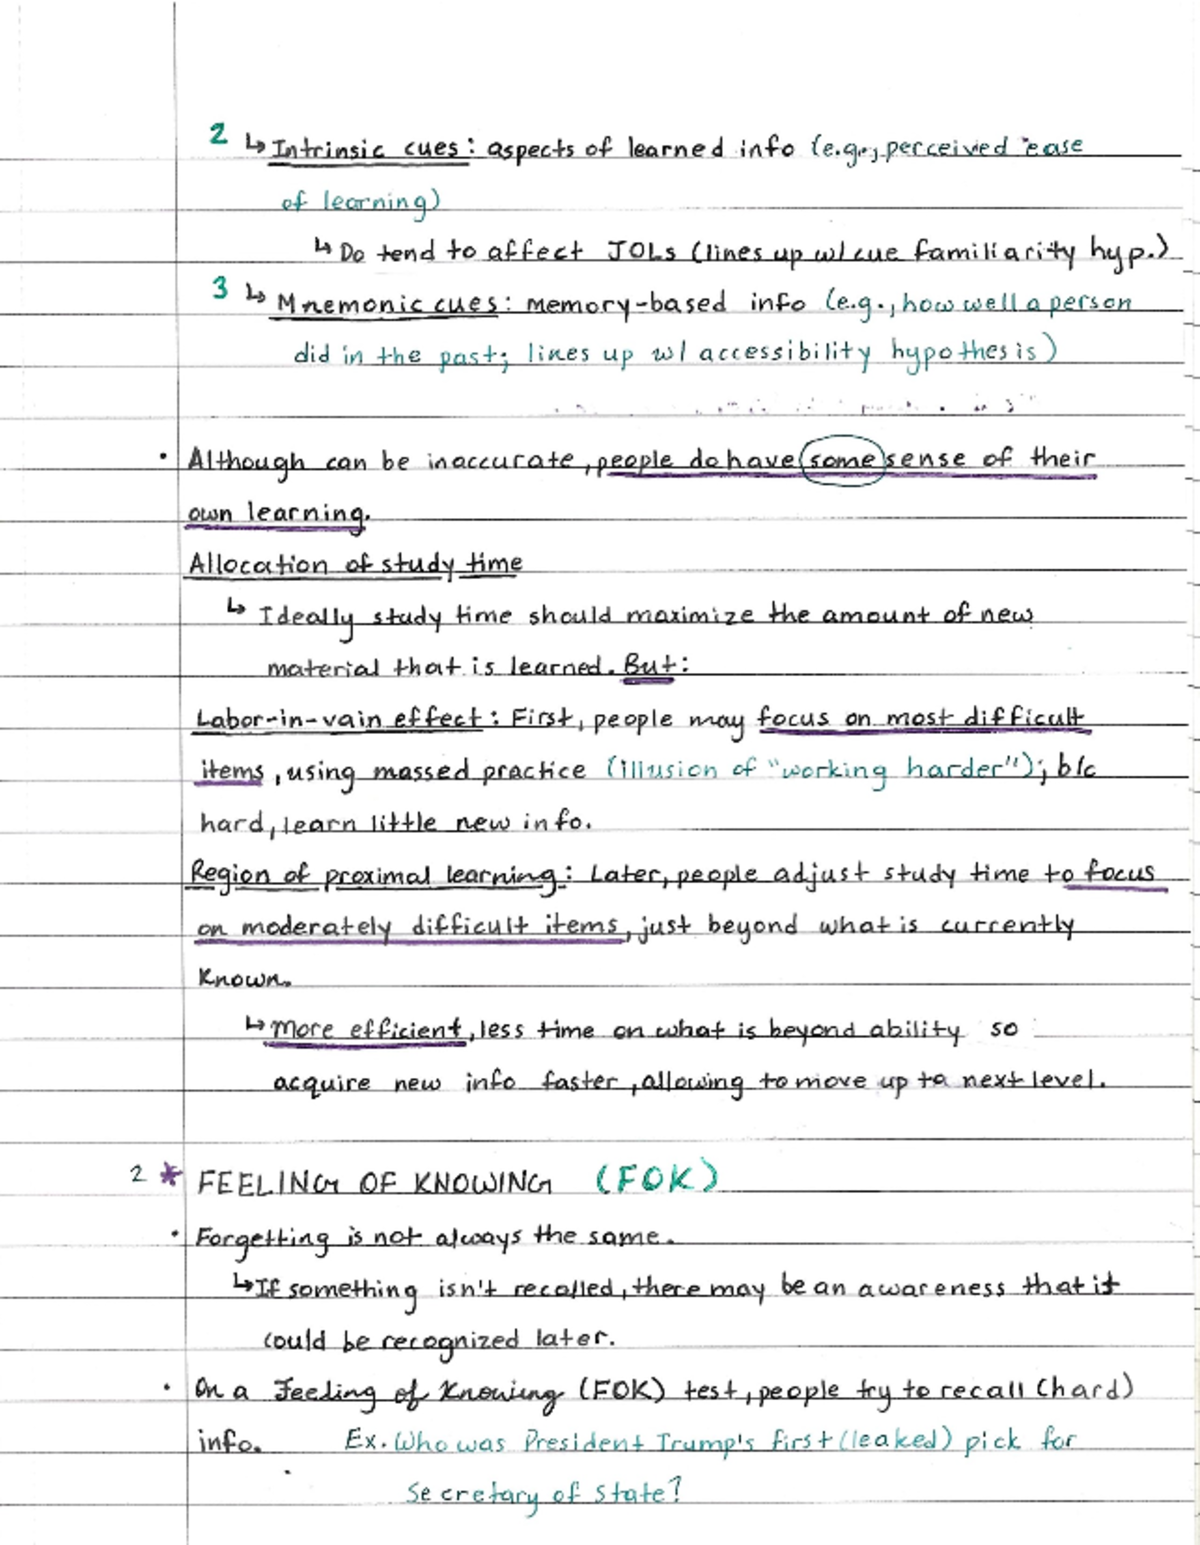 2 ↳ Intrinsic cues: aspects of learned info (e.g., perceived ease
of learning)
↳ Do tend to affect JOLs (lines up w/ cue familiarity hyp.)
3 ↳ Mnemonic cues: memory-based info (e.g., how well a person
did in the past; lines up w/ accessibility hypothesis)
• Although can be inaccurate, people do have some sense of their
own learning.
Allocation of study time
↳ Ideally study time should maximize the amount of new
material that is learned. But:
Labor-in-vain effect: First, people may focus on most difficult
items, using massed practice (illusion of "working harder"); b/c
hard, learn little new info.
Region of proximal learning: Later, people adjust study time to focus
on moderately difficult items, just beyond what is currently
known.
↳ More efficient, less time on what is beyond ability so
acquire new info faster, allowing to move up to next level.
2 * FEELING OF KNOWING (FOK)
• Forgetting is not always the same.
↳ If something isn't recalled, there may be an awareness that it
could be recognized later.
• On a Feeling of Knowing (FOK) test, people try to recall (hard)
info. Ex. Who was President Trump's first (leaked) pick for
Secretary of State?